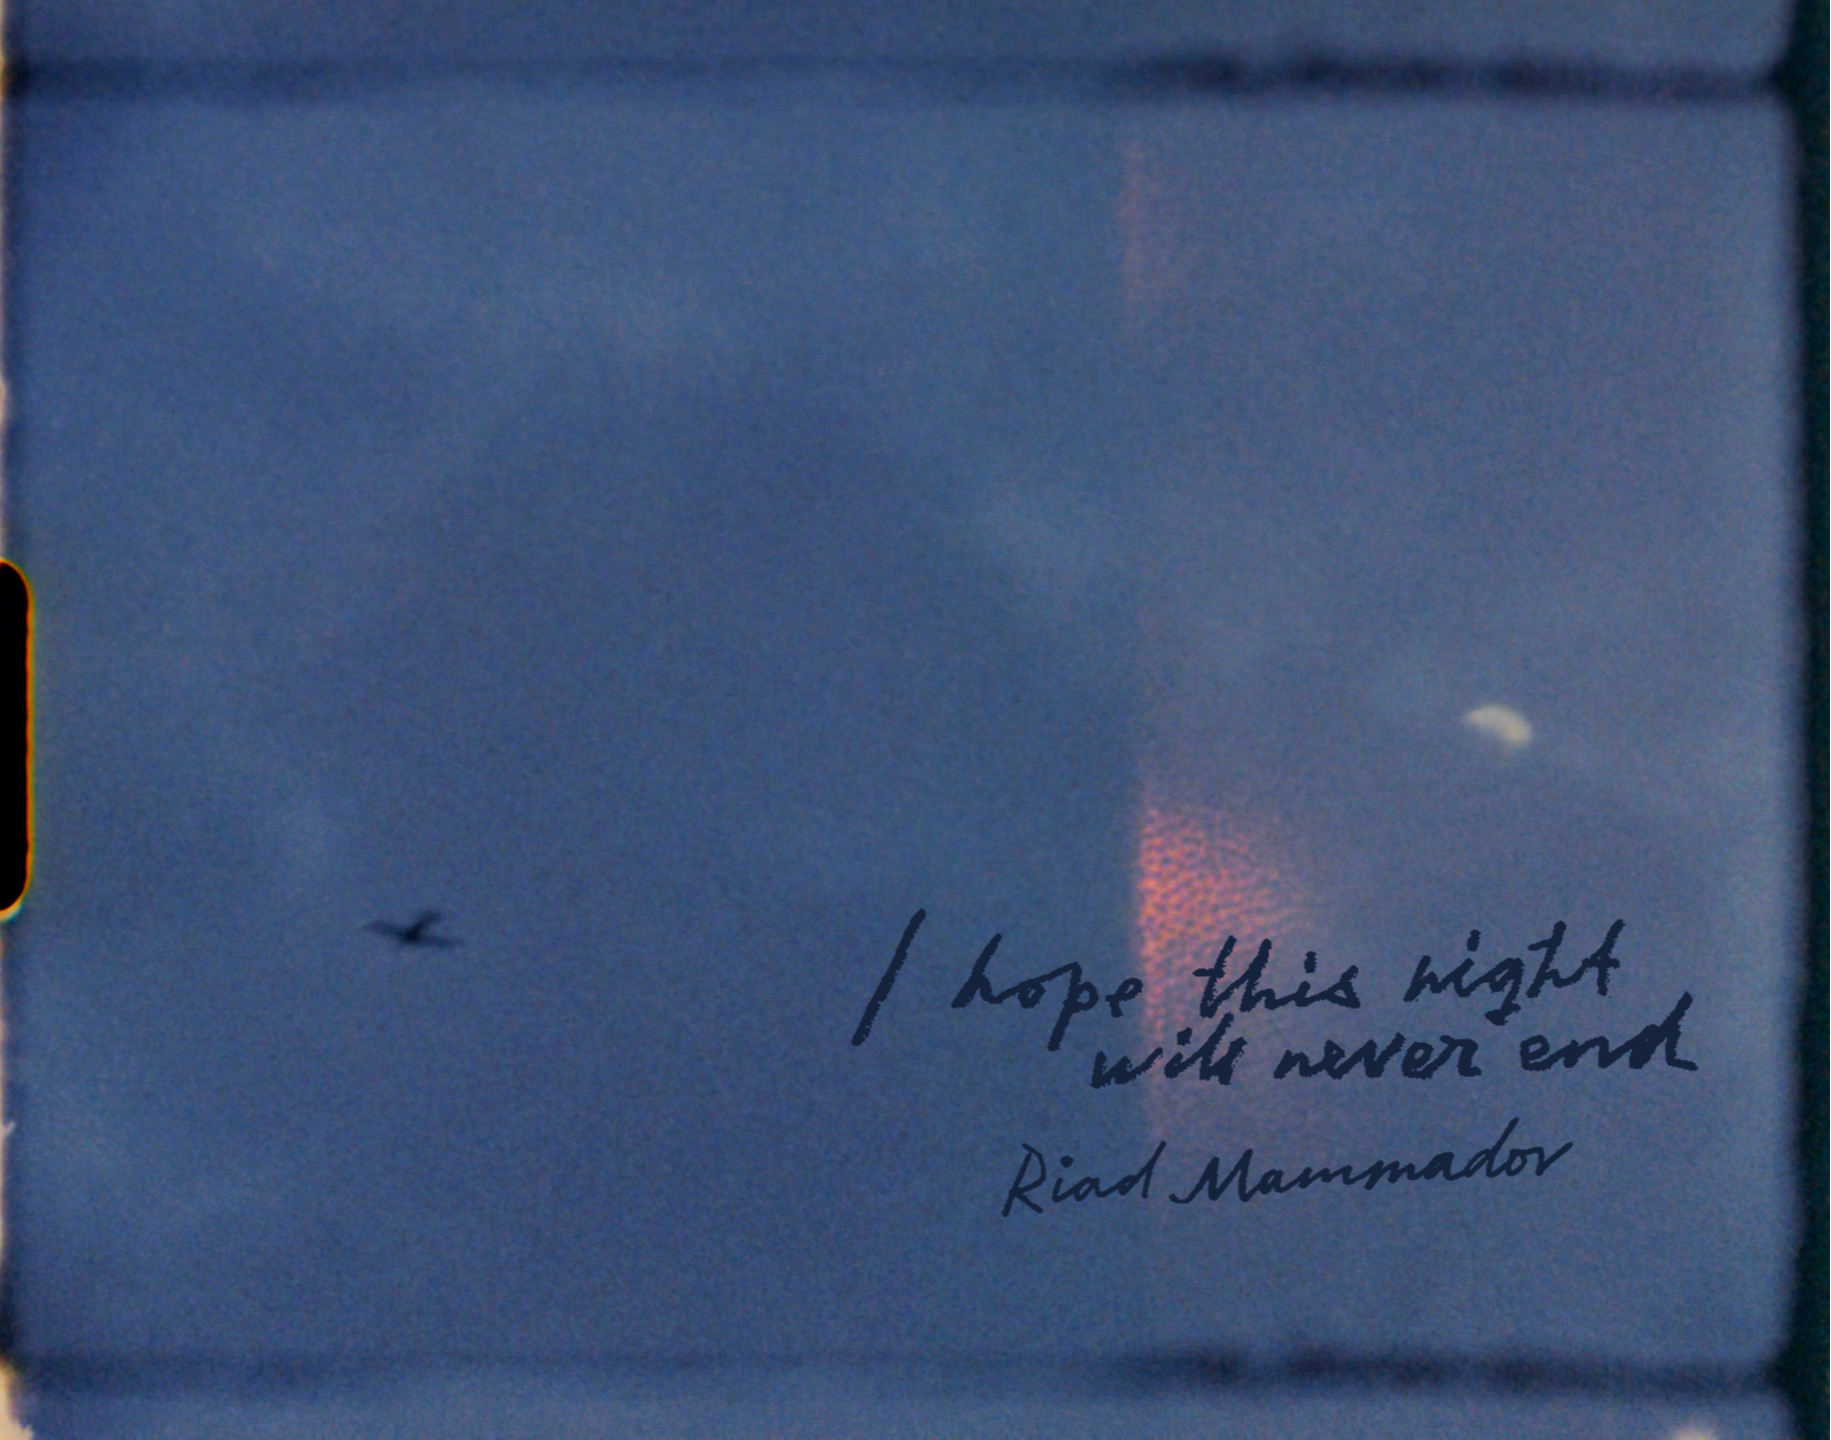 I hope this night
will never end
Riad Mammadov